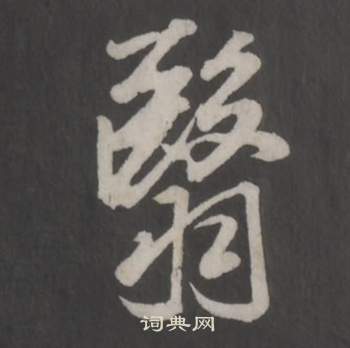 翳
词典网